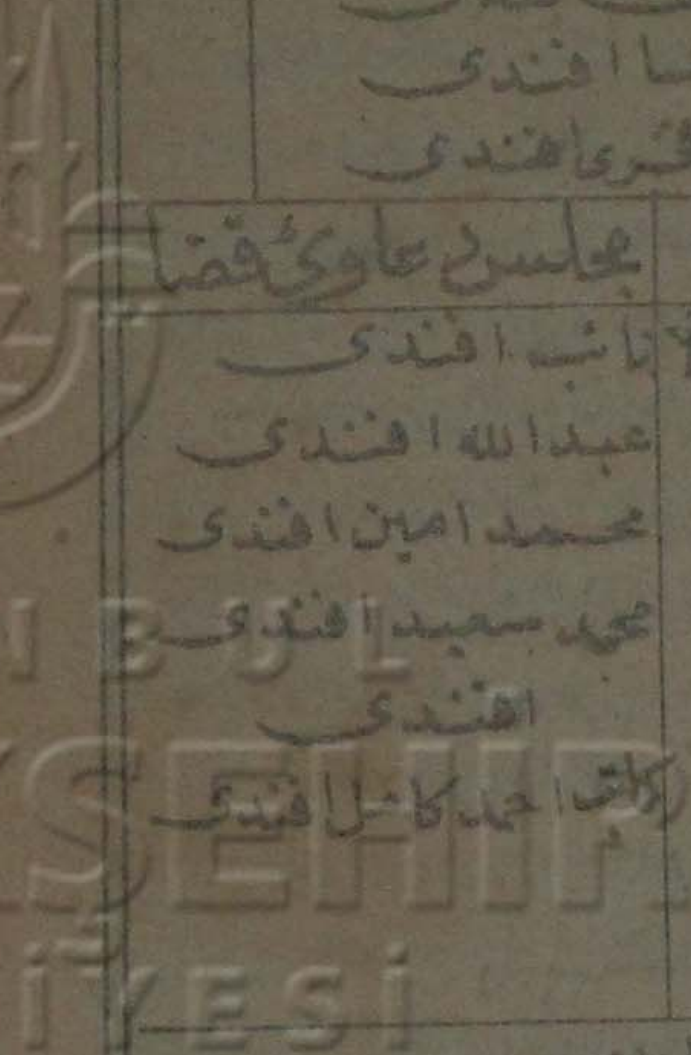 افندی
فخری افندی
مجلس دعاوئ قضا
نائب افندی
عبدالله افندی
محمد امین افندی
محمد سعید افندی
افندی
کاتب احمد کامل افندی